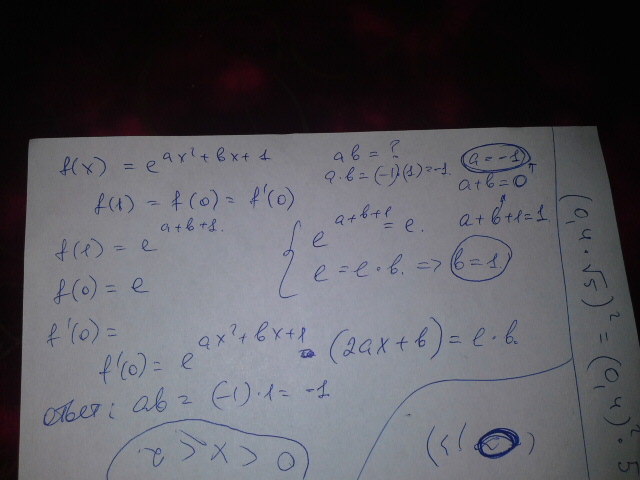 f(x) = e^{ax²+bx+1}
ab = ?
a·b = (-1)·(1) = -1
a = -1
a+b = 0
f(1) = f(0) = f'(0)
f(1) = e^{a+b+1}.
{ e^{a+b+1} = e.
a+b+1=1
f(0) = e
e = e·b. => b=1.
f'(0) =
f'(0) = e^{ax²+bx+1} (2ax+b) = e·b.
ответ: ab = (-1)·1 = -1
(0,4·√5)² = (0,4)²·5
0 < x ≤